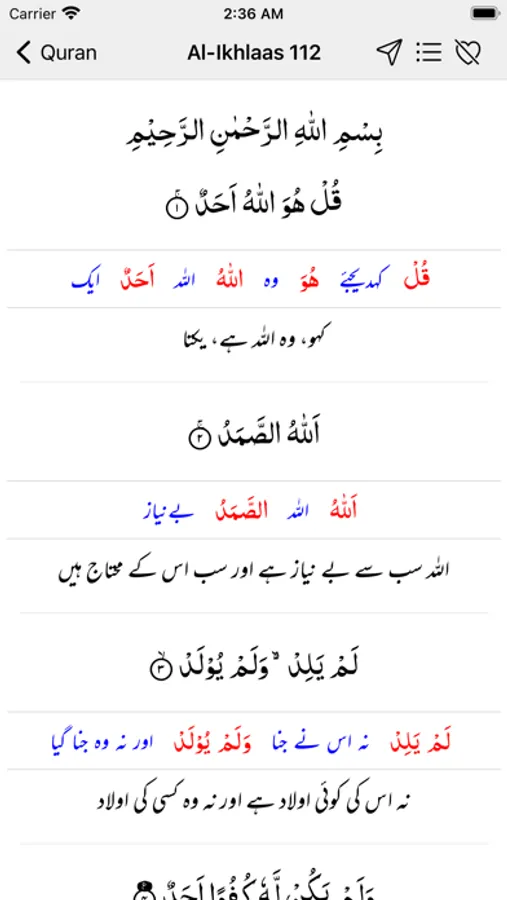 Carrier 2:36 AM
Quran Al-Ikhlaas 112
بِسْمِ اللّٰهِ الرَّحْمٰنِ الرَّحِيْمِ
قُلْ هُوَ اللّٰهُ اَحَدٌ ۚ ۝۱
قُلْ کہدیجئے هُوَ وہ اللّٰهُ اللہ اَحَدٌ ایک
کہو، وہ اللہ ہے، یکتا
اَللّٰهُ الصَّمَدُ ۚ ۝۲
اَللّٰهُ اللہ الصَّمَدُ بےنیاز
اللہ سب سے بے نیاز ہے اور سب اس کے محتاج ہیں
لَمْ يَلِدْ ۙ وَلَمْ يُوْلَدْ ۙ ۝۳
لَمْ يَلِدْ نہ اس نے جنا وَلَمْ يُوْلَدْ اور نہ وہ جنا گیا
نہ اس کی کوئی اولاد ہے اور نہ وہ کسی کی اولاد
وَلَمْ يَكُنْ لَّهٗ كُفُوًا اَحَدٌ ۝۴